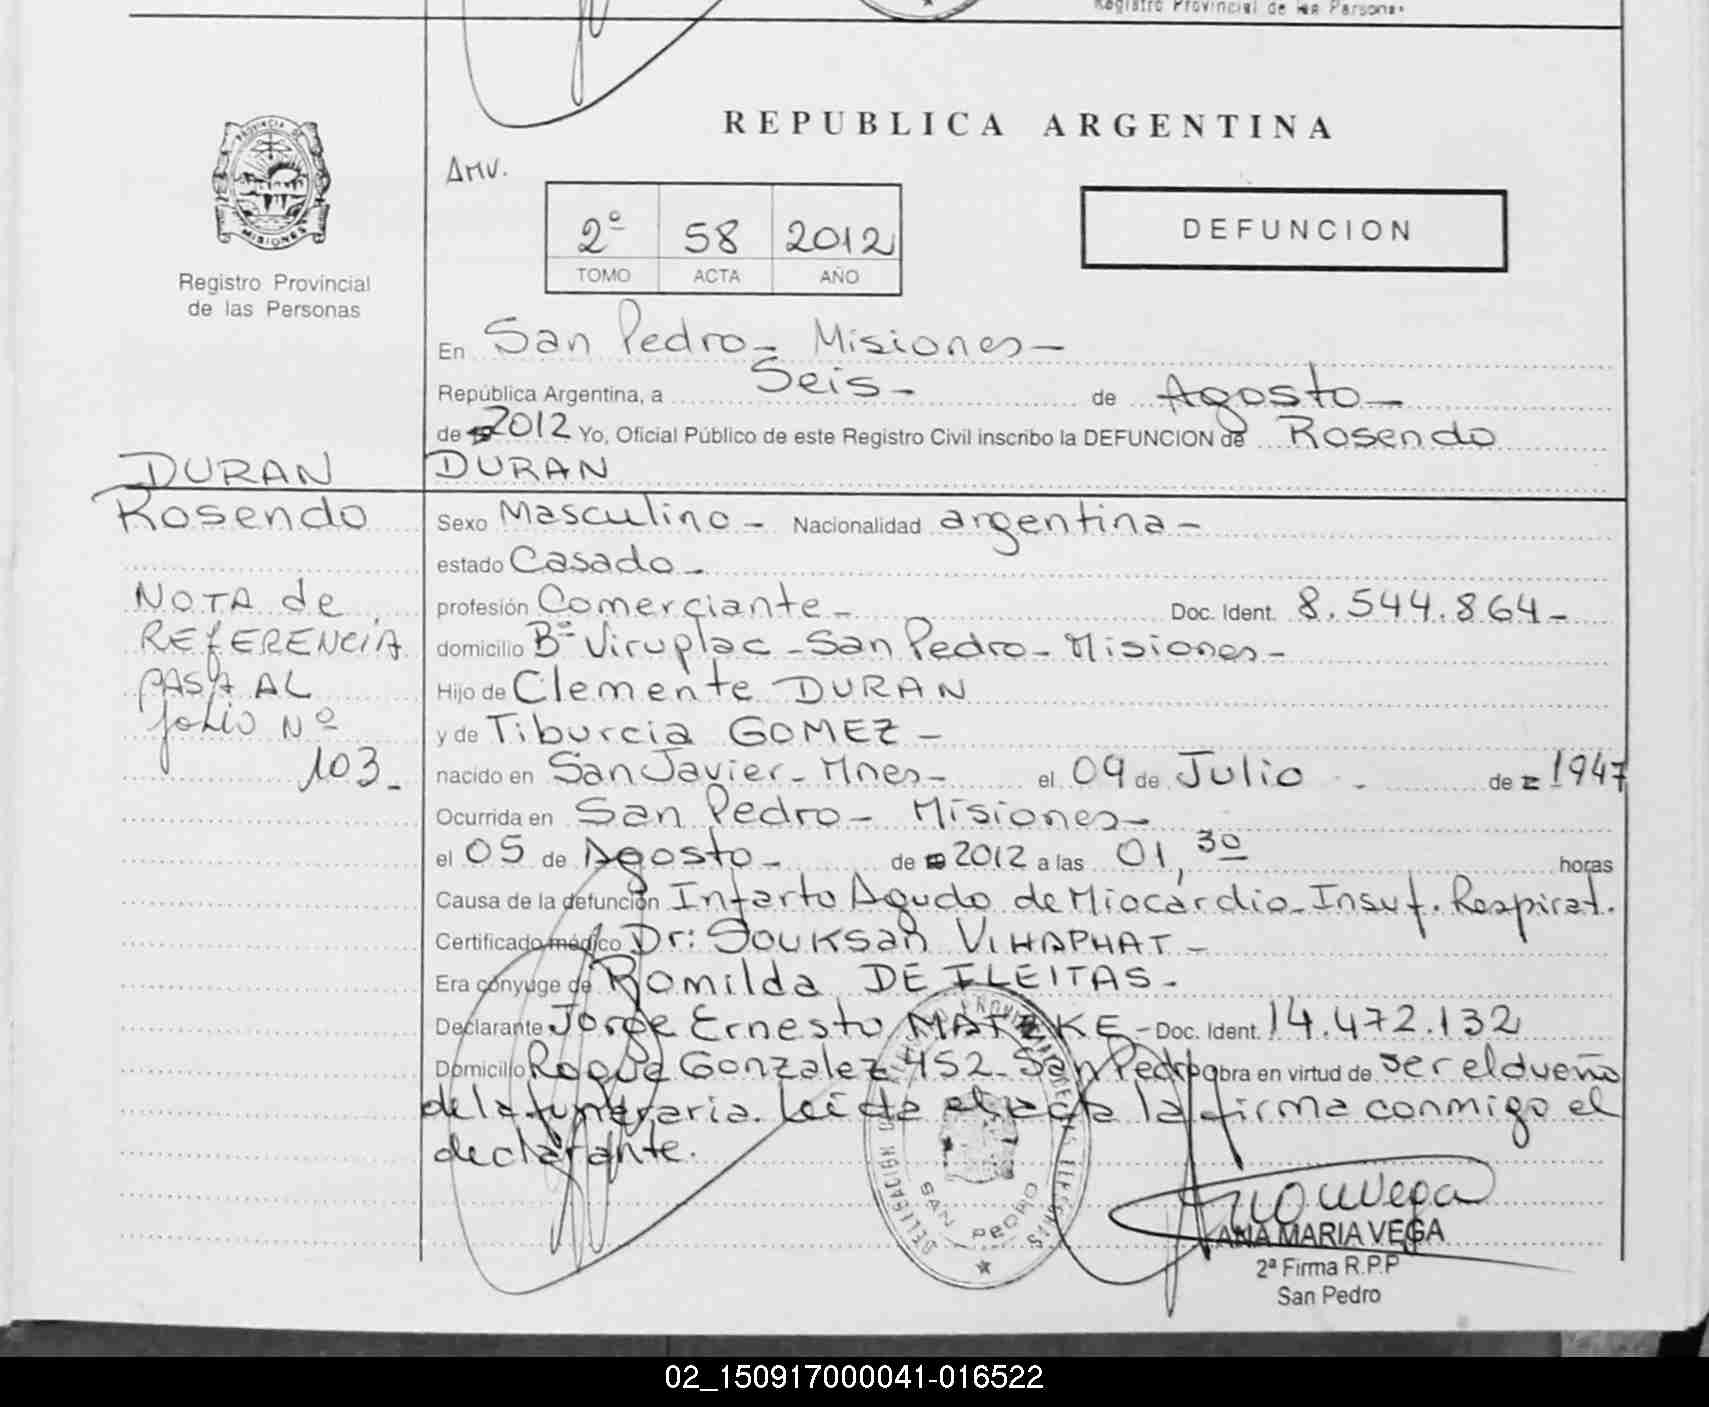 Registro Provincial de las Personas
PROVINCIA DE
MISIONES
Registro Provincial
de las Personas
REPUBLICA ARGENTINA
AMV.
2º 58 2012
TOMO ACTA AÑO
DEFUNCION
En San Pedro - Misiones -
República Argentina, a Seis - de Agosto -
de 2012 Yo, Oficial Público de este Registro Civil inscribo la DEFUNCION de Rosendo
DURAN
DURAN
Rosendo
NOTA de
REFERENCIA
PASA AL
folio Nº
103 -
Sexo Masculino - Nacionalidad argentina -
estado Casado -
profesión Comerciante - Doc. Ident. 8.544.864 -
domicilio Bº Viruplac - San Pedro - Misiones -
Hijo de Clemente DURAN
y de Tiburcia GOMEZ -
nacido en San Javier - Mnes - el 09 de Julio - de 1947
Ocurrida en San Pedro - Misiones -
el 05 de Agosto - de 2012 a las 01,30 horas
Causa de la defunción Infarto Agudo de Miocárdio - Insuf. Respirat.
Certificado médico Dr: SOUKSAN VIHAPHAT -
Era cónyuge de Romilda DE FLEITAS -
Declarante Jorge Ernesto MATZKE - Doc. Ident. 14.472.132
Domicilio Roque Gonzalez 452 - San Pedro obra en virtud de ser el dueño
de la funeraria. Leída el acta la firma conmigo el
declarante.
DELEGACION SAN PEDRO
ANA MARIA VEGA
2ª Firma R.P.P
San Pedro
02_150917000041-016522